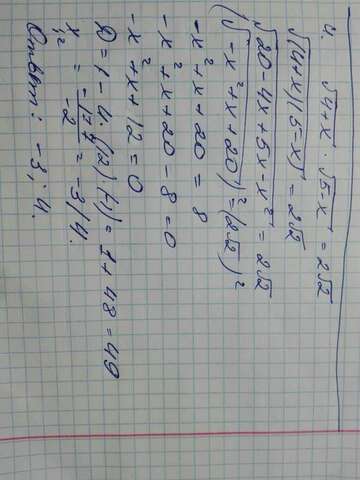 4. √4+x · √5-x = 2√2
√(4+x)(5-x) = 2√2
√20-4x+5x-x² = 2√2
(√-x²+x+20)² = (2√2)²
-x²+x+20 = 8
-x²+x+20-8=0
-x²+x+12=0
D=1-4·12(-1)=1+48=49
x₁,₂ = -1±7/-2 = -3/4.
Ответ: -3; 4.